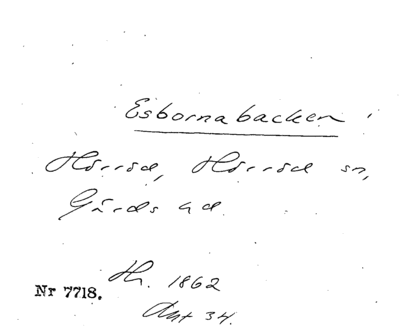 Esbornabacken
Hörröd, Hörröd sn,
Gärds hd.
Hr. 1862
Nr 7718.
Ant 34.